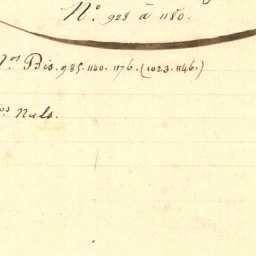 N° 928 à 1180.
Nos Bis. 985. 1140. 1176. (1023. 1146.)
Nos Nuls.